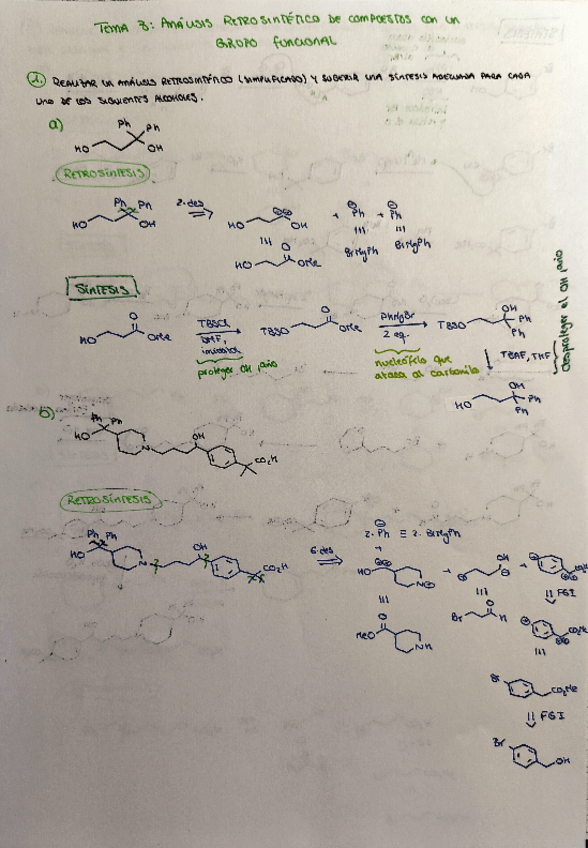 TEMA 3: ANÁLISIS RETROSINTÉTICO DE COMPUESTOS CON UN
GRUPO FUNCIONAL
1. REALIZAR UN ANÁLISIS RETROSINTÉTICO (SIMPLIFICADO) Y SUGERIR UNA SÍNTESIS ADECUADA PARA CADA
UNO DE LOS SIGUIENTES ALCOHOLES.
a)
Ph Ph
HO OH
RETROSÍNTESIS
Ph Ph
HO OH
2-des
HO OH + Ph + Ph
HO O OMe
BrMgPh BrMgPh
SÍNTESIS
HO O OMe
TBSCl
DMF,
imidazol
proteger OH
TBSO O OMe
PhMgBr
2 eq.
nucleófilo que
ataca al carbonilo
TBSO OH Ph Ph
TBAF, THF
desproteger el OH
HO OH Ph Ph
b)
Ph Ph
HO N OH CO2H
RETROSÍNTESIS
Ph Ph
HO N OH CO2H
6-des
2. Ph ≡ 2. BrMgPh
+
HO N + OH +
FGI
MeO O NH
Br O H
CO2Me
Br CO2Me
FGI
Br OH